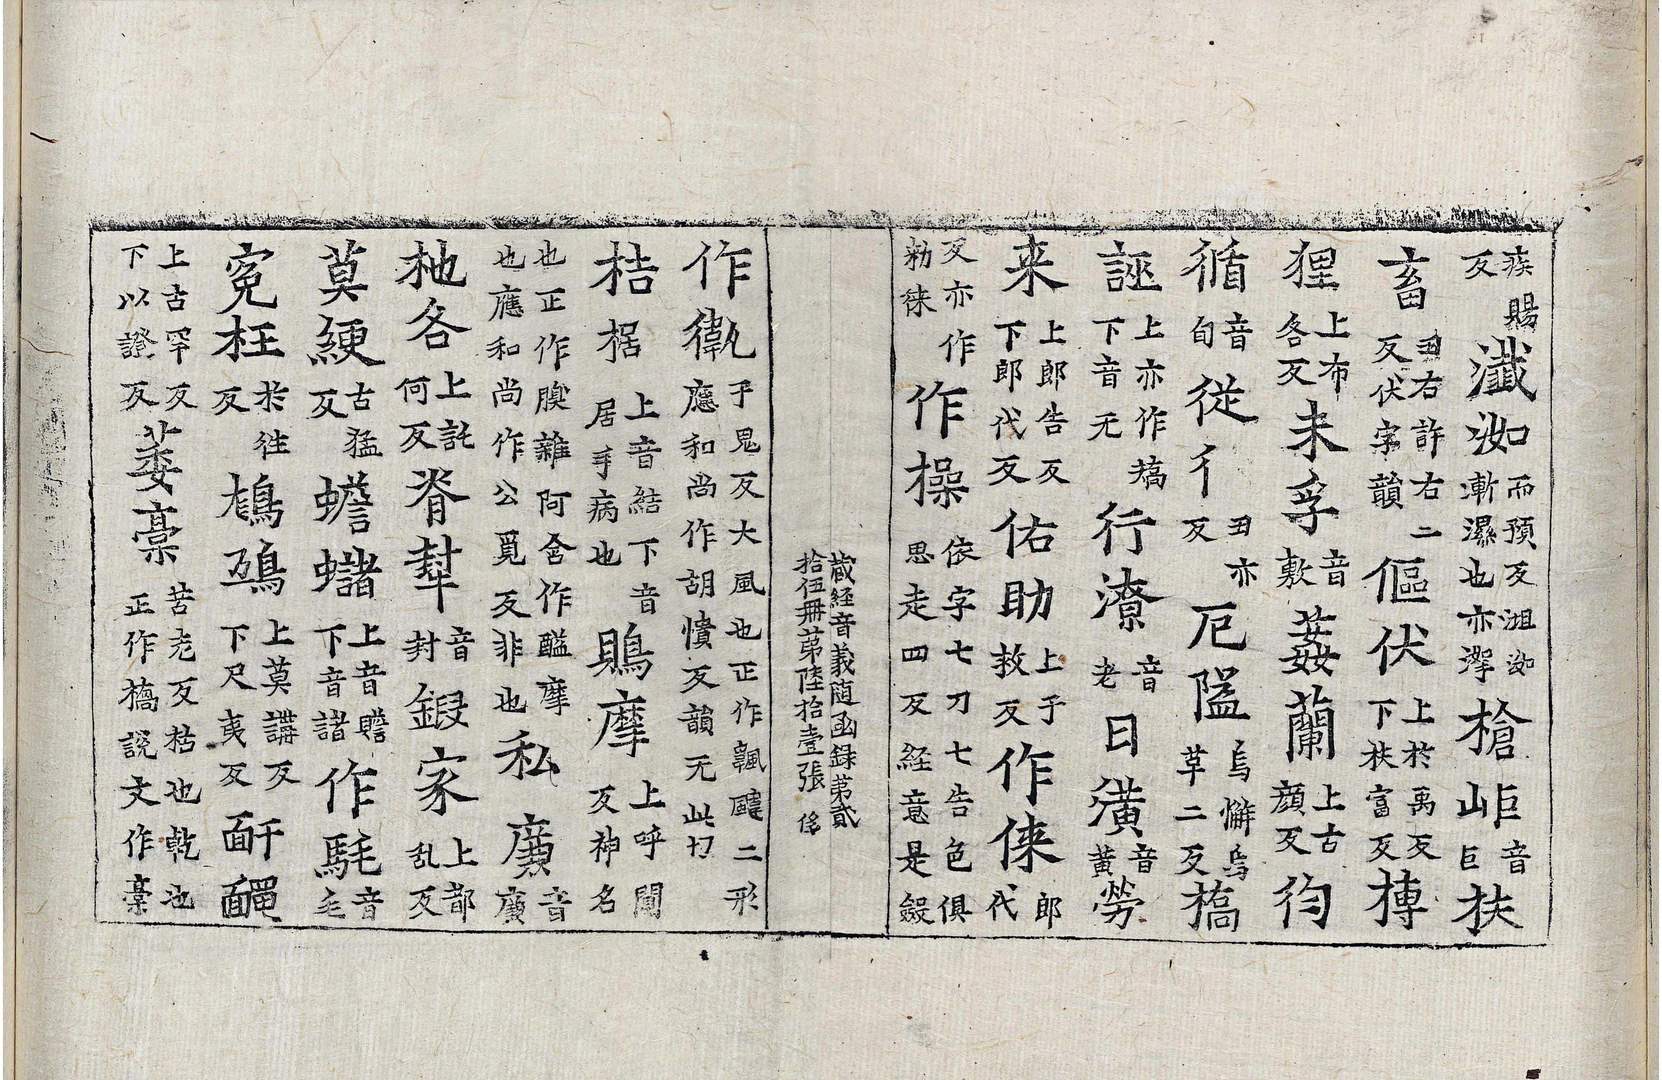 疾賜反瀸洳而預反沮洳漸濕也亦挐槍岠音巨扶
畜丑右許右二反伏字韻傴伏上於禹反下扶富反槫
狸上布各反未孚音敷葌蘭上古顔反徇
循音旬從彳丑亦反厄隘烏懈烏革二反槁
誣上亦作矯下音无行潦音老日㶇音黃勞
来上郎告反下郎代反佑助上于救反作倈郎代
反亦作勑徠作橾依字七刀七告色俱思走四反経意是鋟
藏経音義随函錄第貳拾伍冊第陸拾壹張
作㣲于鬼反大風也正作颽飋二形應和尚作胡憒反韻无此切
桔椐上音結下音居手病也鵙摩上呼闃反神名
也正作䐿雜阿含作醯摩也應和尚作公覓反非也私㢝音廣
杝各上託何反脊犎音封鍛家上都乱反
莫綆古猛反蟾蠩上音瞻下音諸作馲音毛
寃枉於往反鵚鵄上莫講反下尺夷反䩄䩄
上古罕反下以證反萎稾苦老反枯也乾也正作槁説文作稾